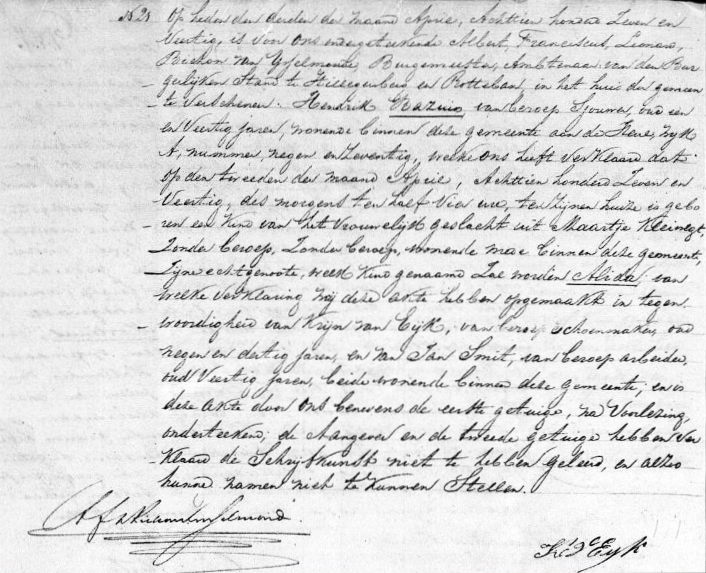 N 21 Op heden den derden der maand April, Achttien honderd Zeven en
Veertig, is voor ons ondergeteekende Albert, Franciscus, Leonard,
Bichon van Yselmonde Burgemeester, Ambtenaar van den Bur
gerlijken Stand te Hillegersberg en Rotteban, in het huis der gemeen
te verschenen. Hendrik Krazuis, van beroep bouwer, oud een
en Veertig jaren, wonende binnen deze gemeente aan de wijk
A, nummer, negen en Zeventig, welke ons heeft verklaard dat
op den tweeden der maand April, Achttien honderd Zeven en
Veertig, des morgens ten half vier ure, ten zijnen huize is gebo
ren een Kind van het Vrouwelijk geslacht uit Maartje Kleinegt,
Zonder beroep, Zonder beroep, wonende mede binnen deze gemeente,
Zijne echtgenoote, welk Kind genaamd zal worden Alida, van
welke verklaring wij deze akte hebben opgemaakt in tegen
woordigheid van Krijn van Eijk, van beroep schoenmaker, oud
negen en dertig jaren, en van Jan Smit, van beroep arbeider,
oud Veertig jaren, beide wonende binnen deze gemeente, en is
deze akte door ons benevens de eerste getuige, na Voorlezing,
onderteekend; de Aangever en de tweede getuige hebben ver
klaard de Schrijfkunst niet te hebben geleerd, en alzoo
hunne namen niet te kunnen Stellen.
Eyk